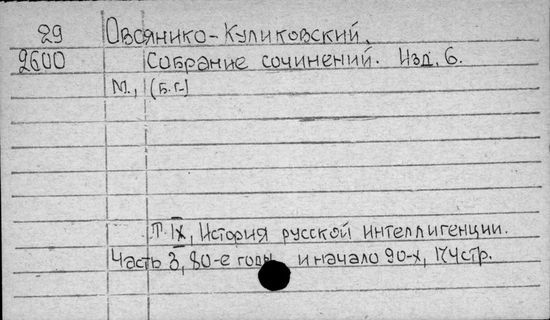 29 Овсянико-Куликовский.
2600 Собрание сочинений. Изд. 6.
М., (б.г.)
Т. IX, История русской интеллигенции.
Часть 3, 80-е годы и начало 90-х, 174стр.